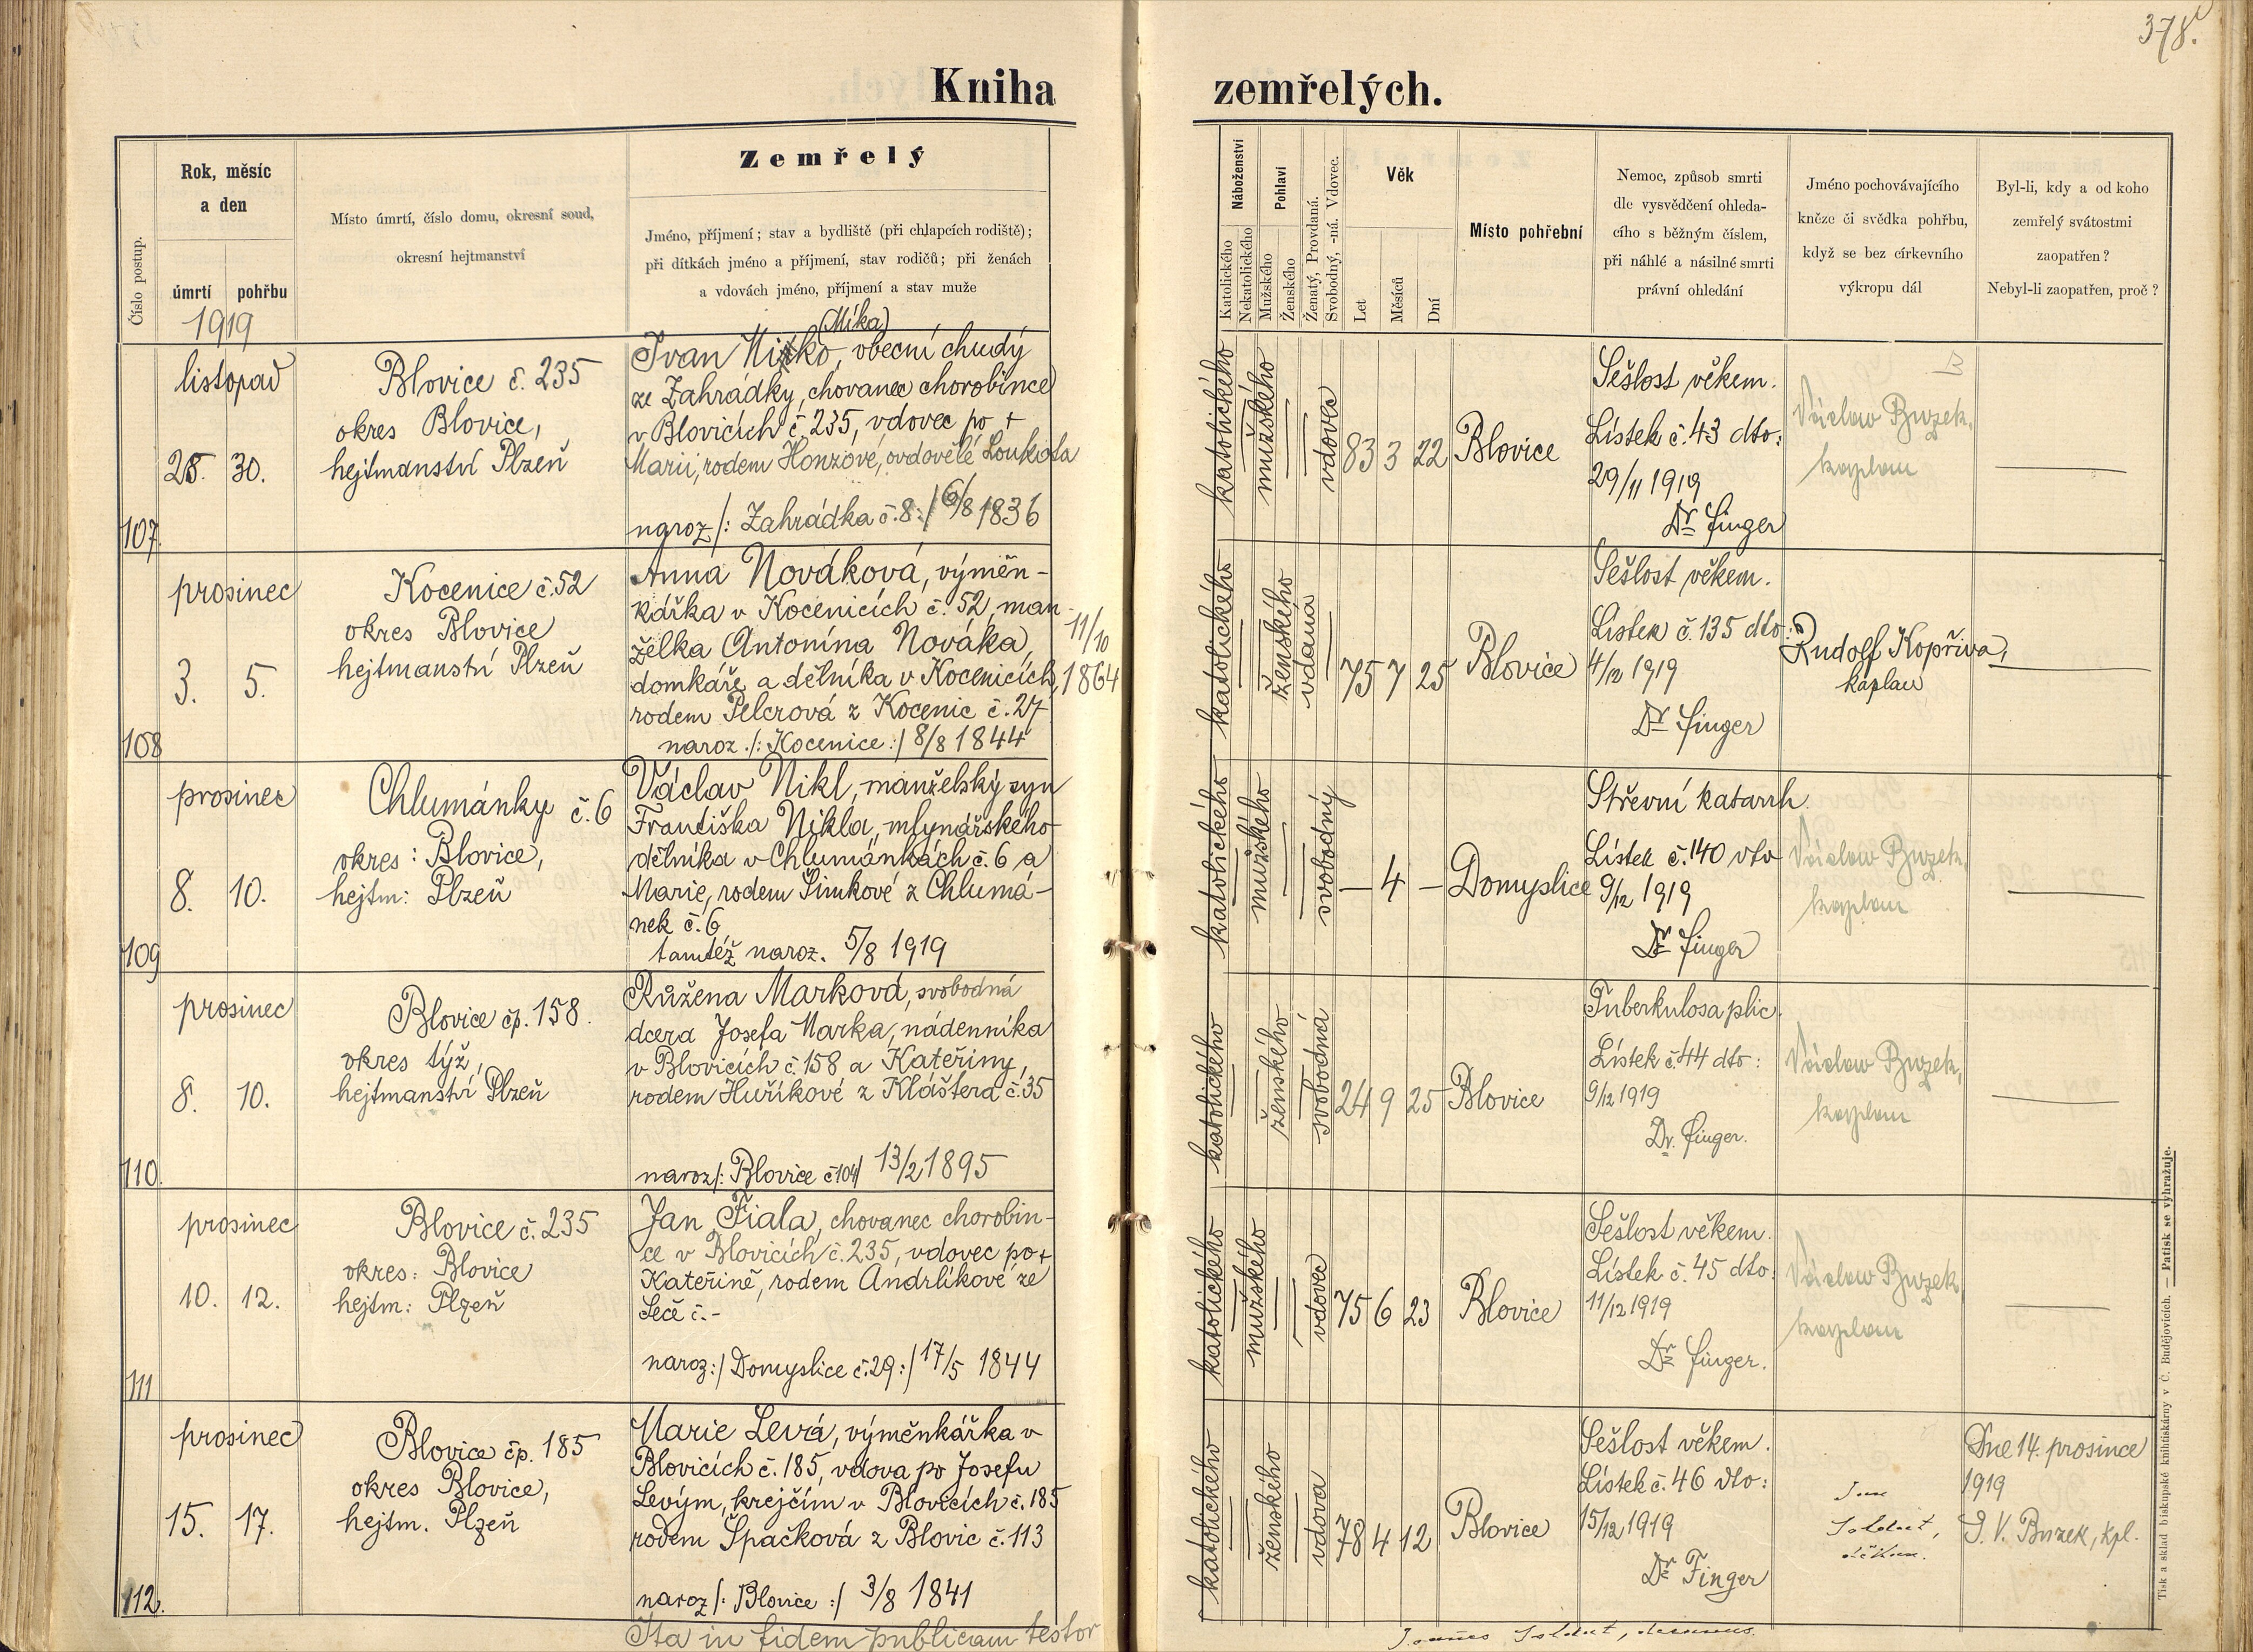 378.
Kniha zemřelých.
Číslo postup.
Rok, měsíc
a den
úmrtí
pohřbu
1919
Místo úmrtí, číslo domu, okresní soud,
okresní hejtmanství
Zemřelý
Jméno, příjmení; stav a bydliště (při chlapcích rodiště);
při dítkách jméno a příjmení, stav rodičů; při ženách
a vdovách jméno, příjmení a stav muže
Náboženství
Katolického
Nekatolického
Pohlaví
Mužského
Ženského
Ženatý, Provdaná.
Svobodný, -ná. Vdovec.
Věk
Let
Měsíců
Dní
Místo pohřební
Nemoc, způsob smrti
dle vysvědčení ohleda-
cího s běžným číslem,
při náhlé a násilné smrti
právní ohledání
Jméno pochovávajícího
kněze či svědka pohřbu,
když se bez církevního
výkropu dál
Byl-li, kdy a od koho
zemřelý svátostmi
zaopatřen?
Nebyl-li zaopatřen, proč?
107.
listopad
28. 30.
Blovice č. 235
okres Blovice,
hejtmanství Plzeň
(Míka)
Ivan , obecní chudý
ze Zahrádky, chovanec chorobince
v Blovicích č. 235, vdovec po +
Marii, rodem Honzové, ovdovělé Loukota
naroz /: Zahrádka č. 8 :/ 6/8 1836
katolického
mužského
vdovec
83 3 22
Blovice
Sešlost věkem.
Lístek č. 43 dto:
29/11 1919
Dr Finger
Václav Buzek,
kaplan
108
prosinec
3. 5.
Kocenice č. 52
okres Blovice
hejtmanství Plzeň
Anna Nováková, výměn-
kářka v Kocenicích č. 52, man-
želka Antonína Nováka,
11/10
domkáře a dělníka v Kocenicích,
1864
rodem Pelcrová z Kocenic č. 27
naroz. /: Kocenice :/ 8/8 1844
katolického
ženského
vdaná
75 7 25
Blovice
Sešlost věkem.
Lístek č. 135 dto:
4/12 1919
Dr Finger
Rudolf Kopřiva,
kaplan
109
prosinec
8. 10.
Chlumánky č. 6
okres: Blovice,
hejtm: Plzeň
Václav Nikl, manželský syn
Františka Nikla, mlynářského
dělníka v Chlumánkách č. 6 a
Marie, rodem Šimkové z Chlumá-
nek č. 6
tamtéž naroz. 5/8 1919
katolického
mužského
svobodný
— 4 —
Domyslice
Střevní katarrh.
Lístek č. 140 dto
9/12 1919
Dr Finger
Václav Buzek,
kaplan
110.
prosinec
8. 10.
Blovice čp. 158.
okres týž,
hejtmanství Plzeň
Růžena Marková, svobodná
dcera Josefa Marka, nádenníka
v Blovicích č. 158 a Kateřiny,
rodem Huříkové z Kláštera č. 35
naroz /: Blovice č 104/ 13/2 1895
katolického
ženského
svobodná
24 9 25
Blovice
Tuberkulosa plic.
Lístek č. 44 dto:
9/12 1919
Dr. Finger.
Václav Buzek,
kaplan
111
prosinec
10. 12.
Blovice č. 235
okres: Blovice
hejtm: Plzeň
Jan Fiala, chovanec chorobin-
ce v Blovicích č. 235, vdovec po +
Kateřině, rodem Andrlíkové ze
Seče č. -
naroz :/ Domyslice č. 29 :/ 17/5 1844
katolického
mužského
vdovec
75 6 23
Blovice
Sešlost věkem.
Lístek č. 45 dto:
11/12 1919
Dr Finger.
Václav Buzek
kaplan
112.
prosinec
15. 17.
Blovice čp. 185
okres Blovice,
hejtm. Plzeň
Marie Levá, výměnkářka v
Blovicích č. 185, vdova po Josefu
Levým, krejčím v Blovicích č. 185
rodem Špačková z Blovic č. 113
naroz /: Blovice :/ 3/8 1841
katolického
ženského
vdova
78 4 12
Blovice
Sešlost věkem.
Lístek č. 46 dto:
15/12 1919
Dr Finger
Jan
Soldát,
děkan.
Dne 14. prosince
1919
P. V. Buzek, kpl.
Ita in fidem publicam testor
Joannes Soldát, decanus.
Tisk a sklad biskupské knihtiskárny v Č. Budějovicích. — Patisk se vyhražuje.